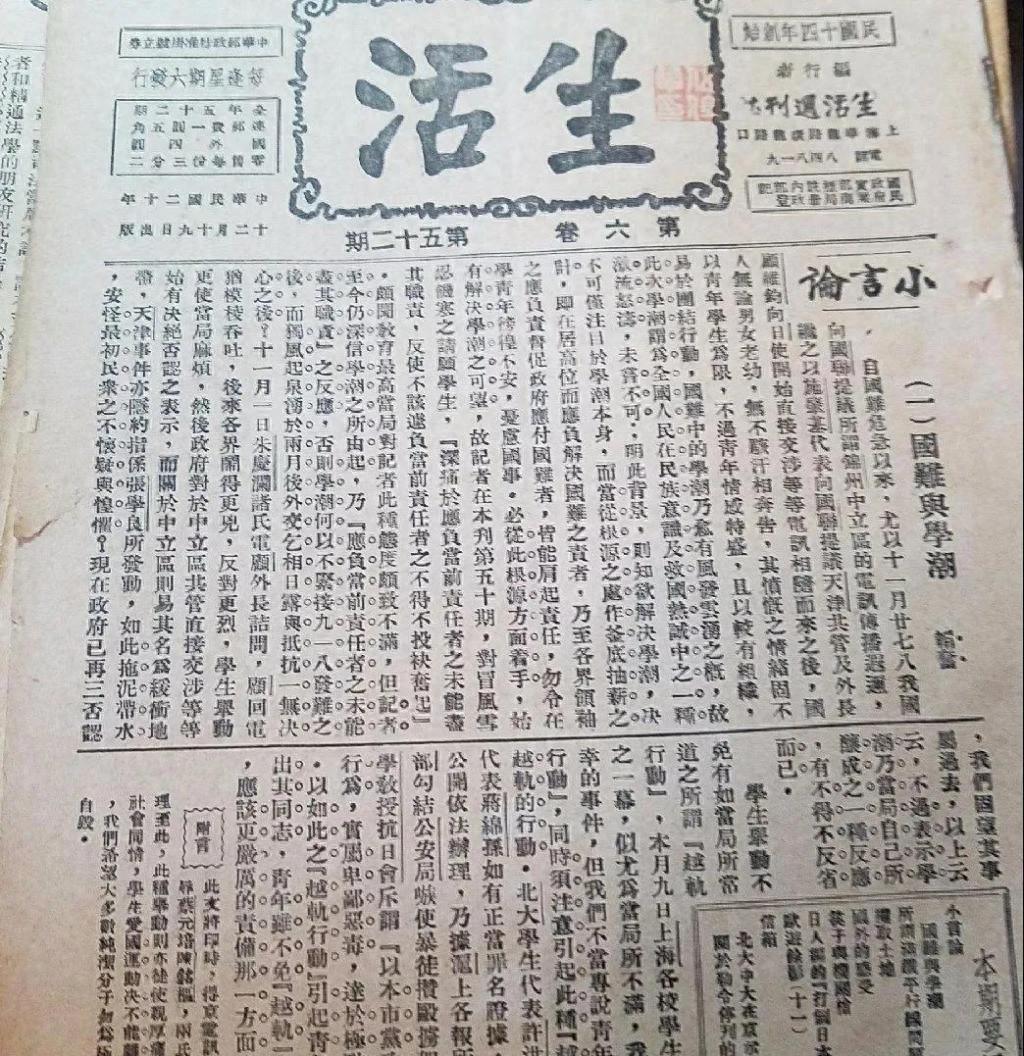 民國十四年創始
編行者
生活週刊社
上海華龍路環龍路口
電話 八四八一九
生活
中華郵政特准掛號立券
每逢星期六發行
全年五十二期
連郵費一圓五角
國外四圓
零售每份三分二
中華民國二十年
十二月十九日出版
第六卷 第五十二期
小言論
(一)國難與學潮 韜奮
自國難危急以來,尤以十一月廿七八我國
向國聯提議所謂錦州中立區的電訊傳播遐邇,
繼之以施肇基代表向國聯提議天津共管及外長
顧維鈞向日使開始直接交涉等等電訊相隨而來之後,國
人無論男女老幼,無不駭汗相奔告,其憤慨之情緒固不
以青年學生爲限,不過青年情感特盛,且以較有組織,
易於團結行動,國難中的學潮乃愈有風發雲湧之概,故
此次學潮謂爲全國人民在民族意識及救國熱誠中之一種
激流怒濤,未嘗不可。明此背景,則知欲解決學潮,决
不可僅注目於學潮本身,而當從根源之處作釜底抽薪之
計,即在居高位而應負解決國難之責者,乃至各界領袖
之應負責督促政府應付國難者,皆能肩起責任,勿令在
學青年徬徨不安,憂慮國事。必從此根源方面着手,始
有解決學潮之可望,故記者在本刊第五十期,對冒風雪
忍饑寒之請願學生,『深痛於應負當前責任者之未能盡
其職責,反使不該遽負當前責任者之不得不投袂奮起』
。頗聞教育最高當局對記者此種態度頗致不滿,但記者
至今仍深信學潮之所由起,乃『應負當前責任者之未能
盡其職責』之反應,否則學潮何以不緊接九一八發難之
後,而獨風起泉湧於兩月後外交乞相日露與抵抗一無决
心之後?十一月一日朱慶瀾諸氏電顧外長詰問,顧回電
猶模棱吞吐,後來各界鬧得更兇,反對更烈,學生舉動
更使當局麻煩,然後政府對於中立區共管直接交涉等等
始有決絕否認之表示,而關於中立區則易其名爲緩衝地
帶,天津事件亦隱約指係張學良所發動,如此拖泥帶水
,安怪最初民衆之不懷疑與惶懼?現在政府已再三否認
,我們固望其事
屬過去,以上云
云,不過表示學
潮乃當局自己所
釀成之一種反應
,有不得不反省
而已。
學生舉動不
免有如當局所常
道之所謂『越軌
行動』,本月九日上海各校學生
之一幕,似尤爲當局所不滿,我
幸的事件,但我們不當專說青年
行動』,同時須注意引起此種『越
越軌的行動。北大學生代表許
代表蔣綿孫如有正當罪名證據,
公開依法辦理,乃據滬上各報所
部勾結公安局嗾使暴徒攢毆
學教授抗日會斥謂『以本市黨
行爲,實屬卑鄙惡毒,達於極
。以如此之『越軌行動』引起青
出其同志,青年雖不免『越軌』
,應該更嚴厲的責備那一方面
附言
此文將印時,得京電訊
辱蔡元培陳銘樞,兩氏
理至此,此種舉動則亦徒使親厚痛
社會同情,學生愛國運動决不能
,我們洛認大多數純潔分子勿爲
自毀。
本期要
小言論
國難與學潮
國外的感受
日人編的『打倒日
獻遊餘影(十一)
信箱
北大中大在京
關於勒令停刊的
者和精通法學的朋友研究的